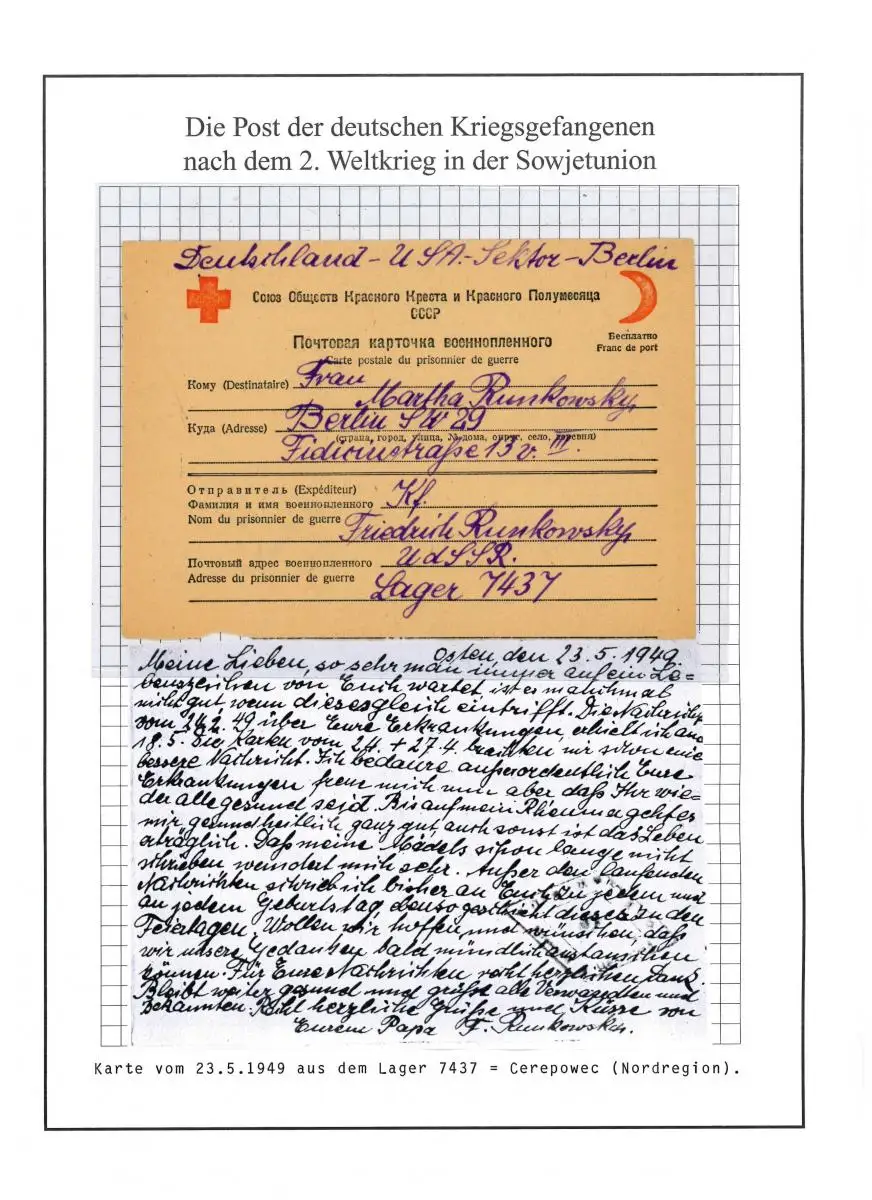 Die Post der deutschen Kriegsgefangenen
nach dem 2. Weltkrieg in der Sowjetunion
Deutschland - USA.-Sektor - Berlin
Союз Обществ Красного Креста и Красного Полумесяца
СССР
Почтовая карточка военнопленного
Carte postale du prisonnier de guerre
Бесплатно
Franc de port
Кому (Destinataire) Frau
Martha Runkowsky,
Куда (Adresse) Berlin SW 29
(страна, город, улица, № дома, округ, село, деревня)
Fidicinstraße 13 v. III.
Отправитель (Expéditeur)
Фамилия и имя военнопленного Kf.
Nom du prisonnier de guerre Friedrich Runkowsky,
Почтовый адрес военнопленного UdSSR.
Adresse du prisonnier de guerre Lager 7437
Osten, den 23.5.1949.
Meine Lieben, so sehr man immer auf ein Le-
benszeichen von Euch wartet, ist es manchmal
nicht gut, wenn dieses gleich eintrifft. Die Nachricht
vom 24.2.49 über Eure Erkrankungen, erhielt ich am
18.5. Die Karten vom 2.4. + 27.4. brachten mir schon eine
bessere Nachricht. Ich bedaure außerordentlich Eure
Erkrankungen freue mich nun aber daß Ihr wie-
der alle gesund seid. Bis auf mein Rheuma geht es
mir gesundheitlich ganz gut, auch sonst ist das Leben
erträglich. Daß meine Mädels schon lange nicht
schrieben wundert mich sehr. Außer den laufenden
Nachrichten schrieb ich bisher an Euch zu jedem und
an jedem Geburtstag, ebenso geschieht dieses an den
Feiertagen. Wollen wir hoffen und wünschen, daß
wir unsere Gedanken bald mündlich austauschen
können. Für Eure Nachrichten recht herzlichen Dank.
Bleibt weiter gesund und grüßt alle Verwandten und
Bekannten. Recht herzliche Grüße und Küsse von
Eurem Papa F. Runkowsky.
Karte vom 23.5.1949 aus dem Lager 7437 = Cerepowec (Nordregion).